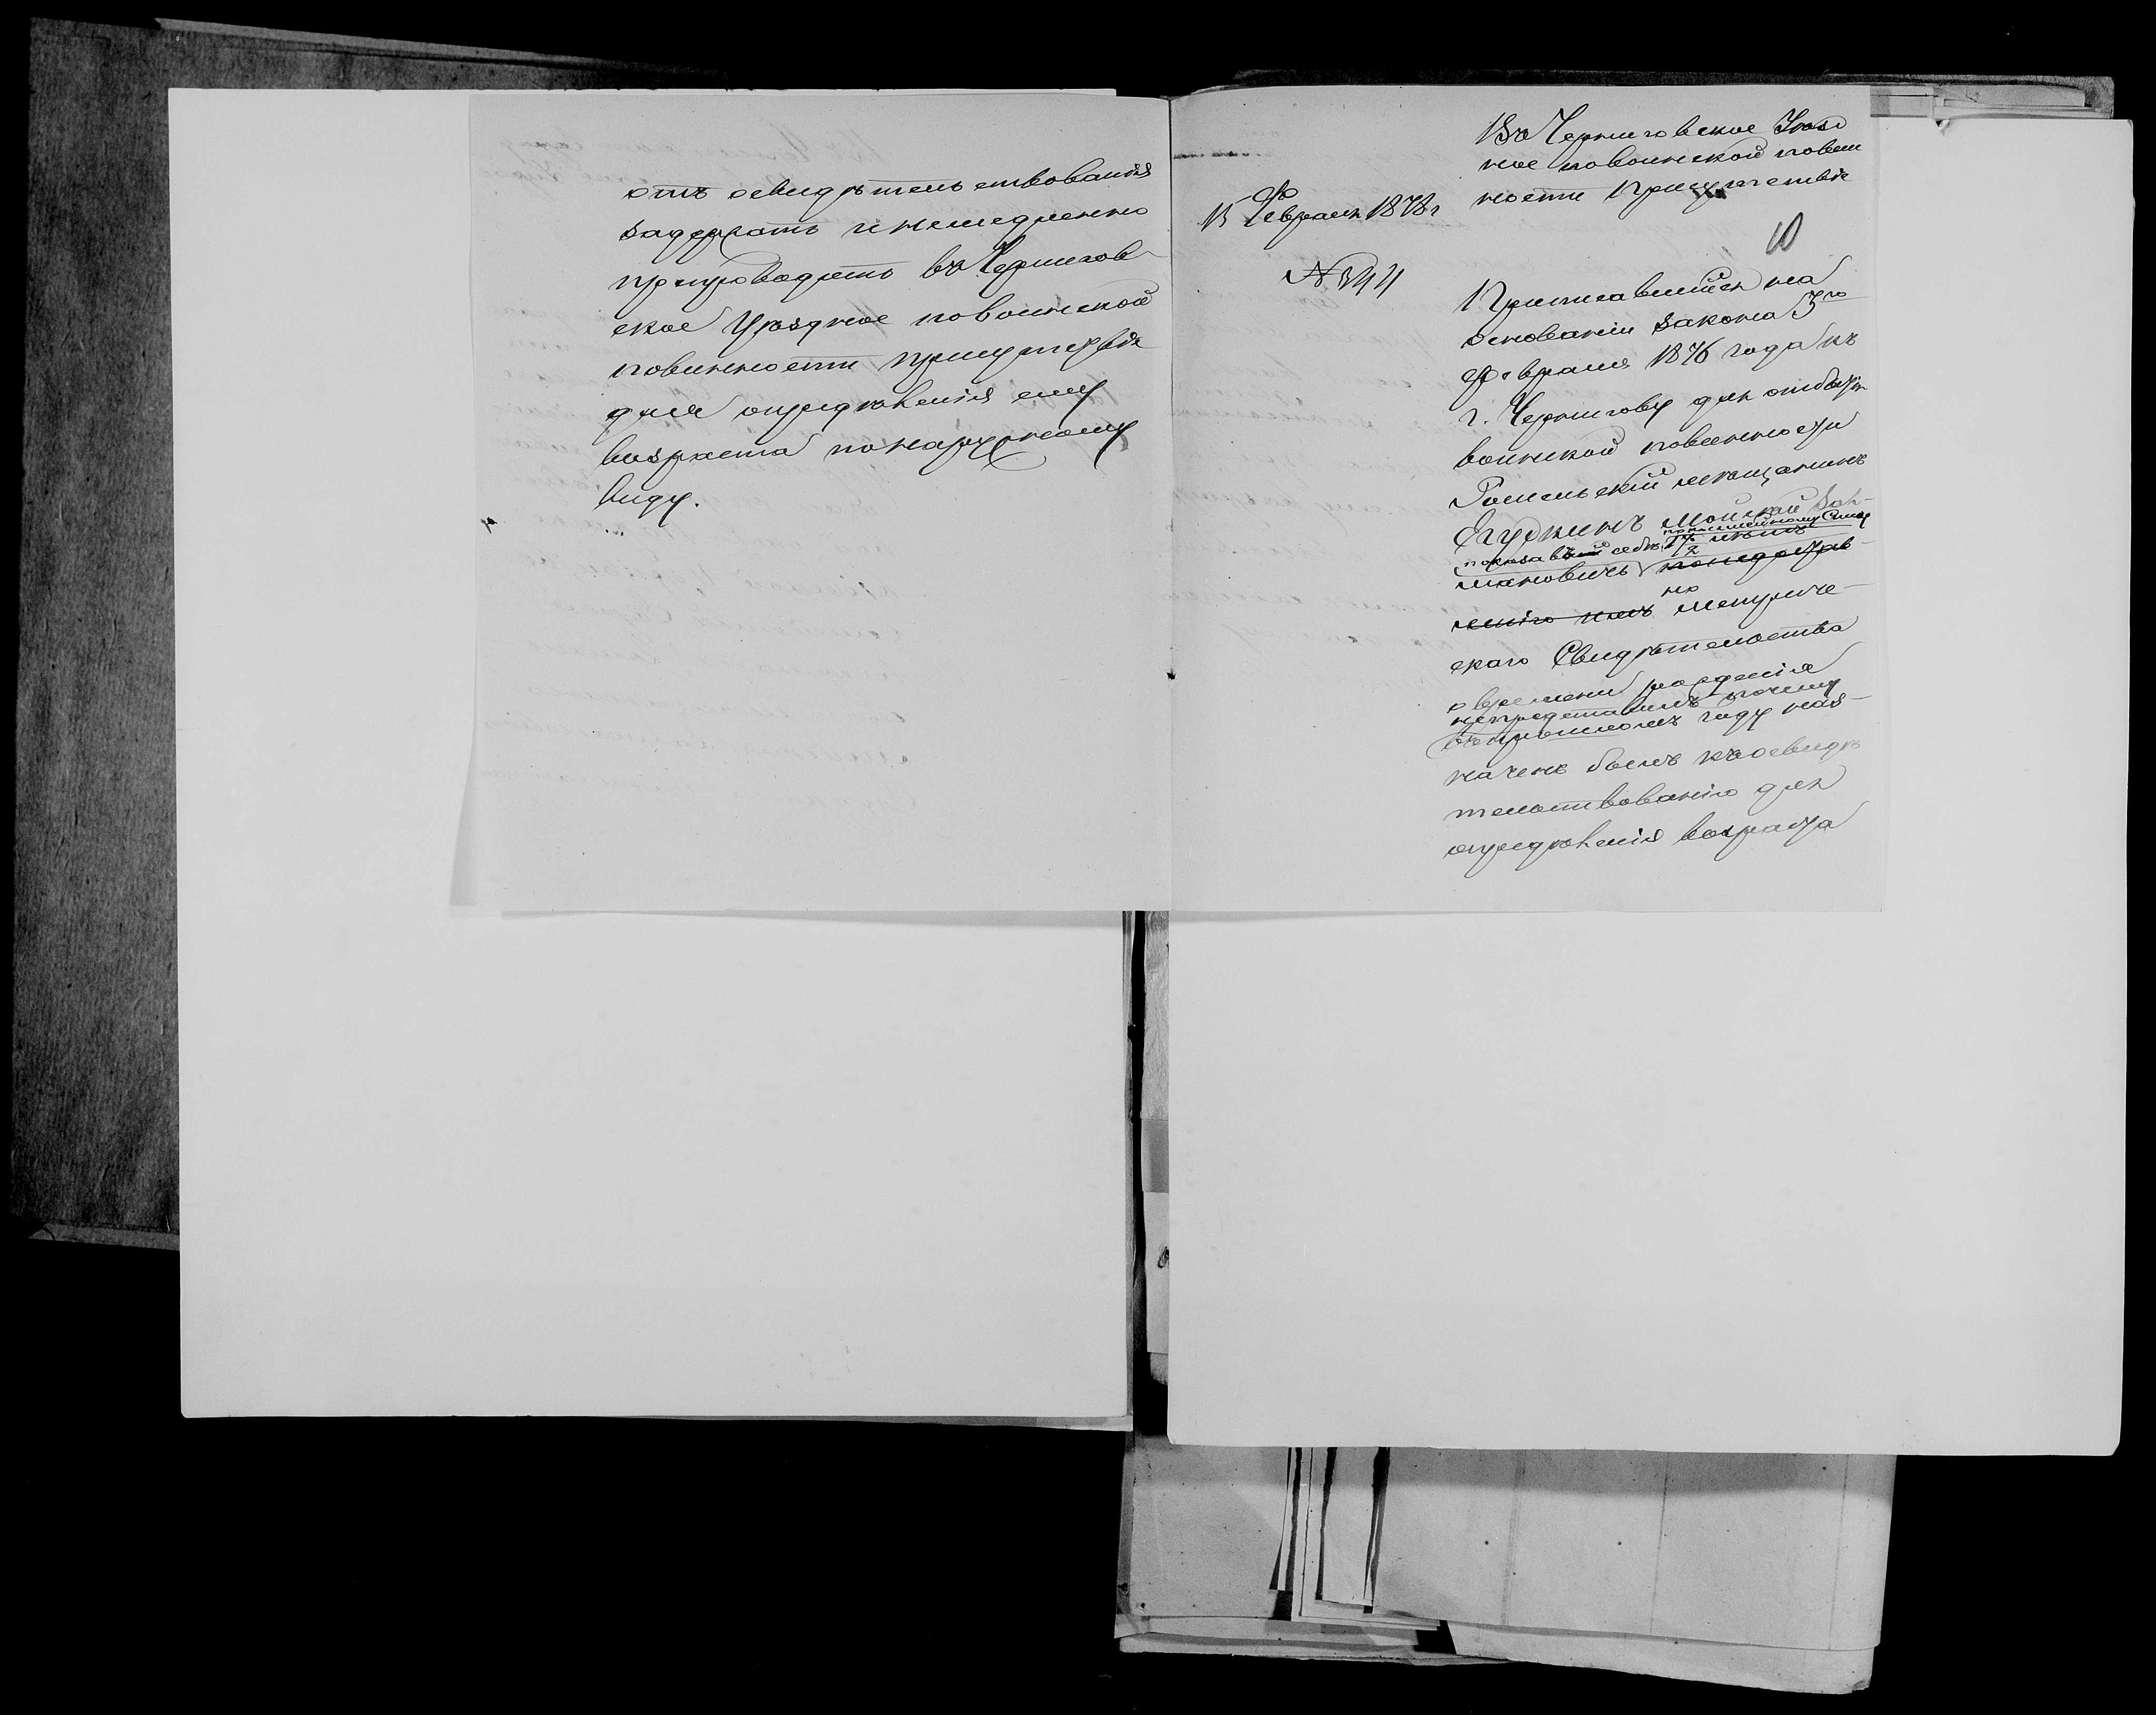 отъ освидѣтельствованія
задержать и немедленно
препроводить въ Чернигов-
ское Уѣздное по воинской
повинности присутствіе
для опредѣленія ему
возраста по наружному
виду.
Въ Черниговское Уѣзд
ное по воинской повин
ности Присутствіе
15 Февраля 1878 г
10
№ 344
Приписавшійся на
основаніи закона 3го
февраля 1876 года къ
г. Чернигову для отбытія
воинской повинности
Роменскій мѣщанинъ
Егудкинъ Мойсей
показавшій себя по посемейному
мановичъ
но метриче-
скаго Свидѣтельства
о времени рожденія
непредставилъ почему
въ прошломъ году наз-
наченъ былъ къ освидѣ
тельствованію для
опредѣленія возраста